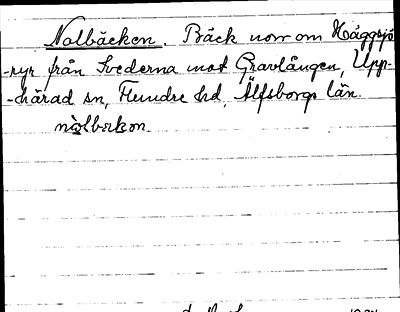 Nolbäcken. Bäck norr om Häggsjö
-ryr från Svederna mot Gravlången, Upp-
-härad sn, Flundre hd, Älfsborgs län.